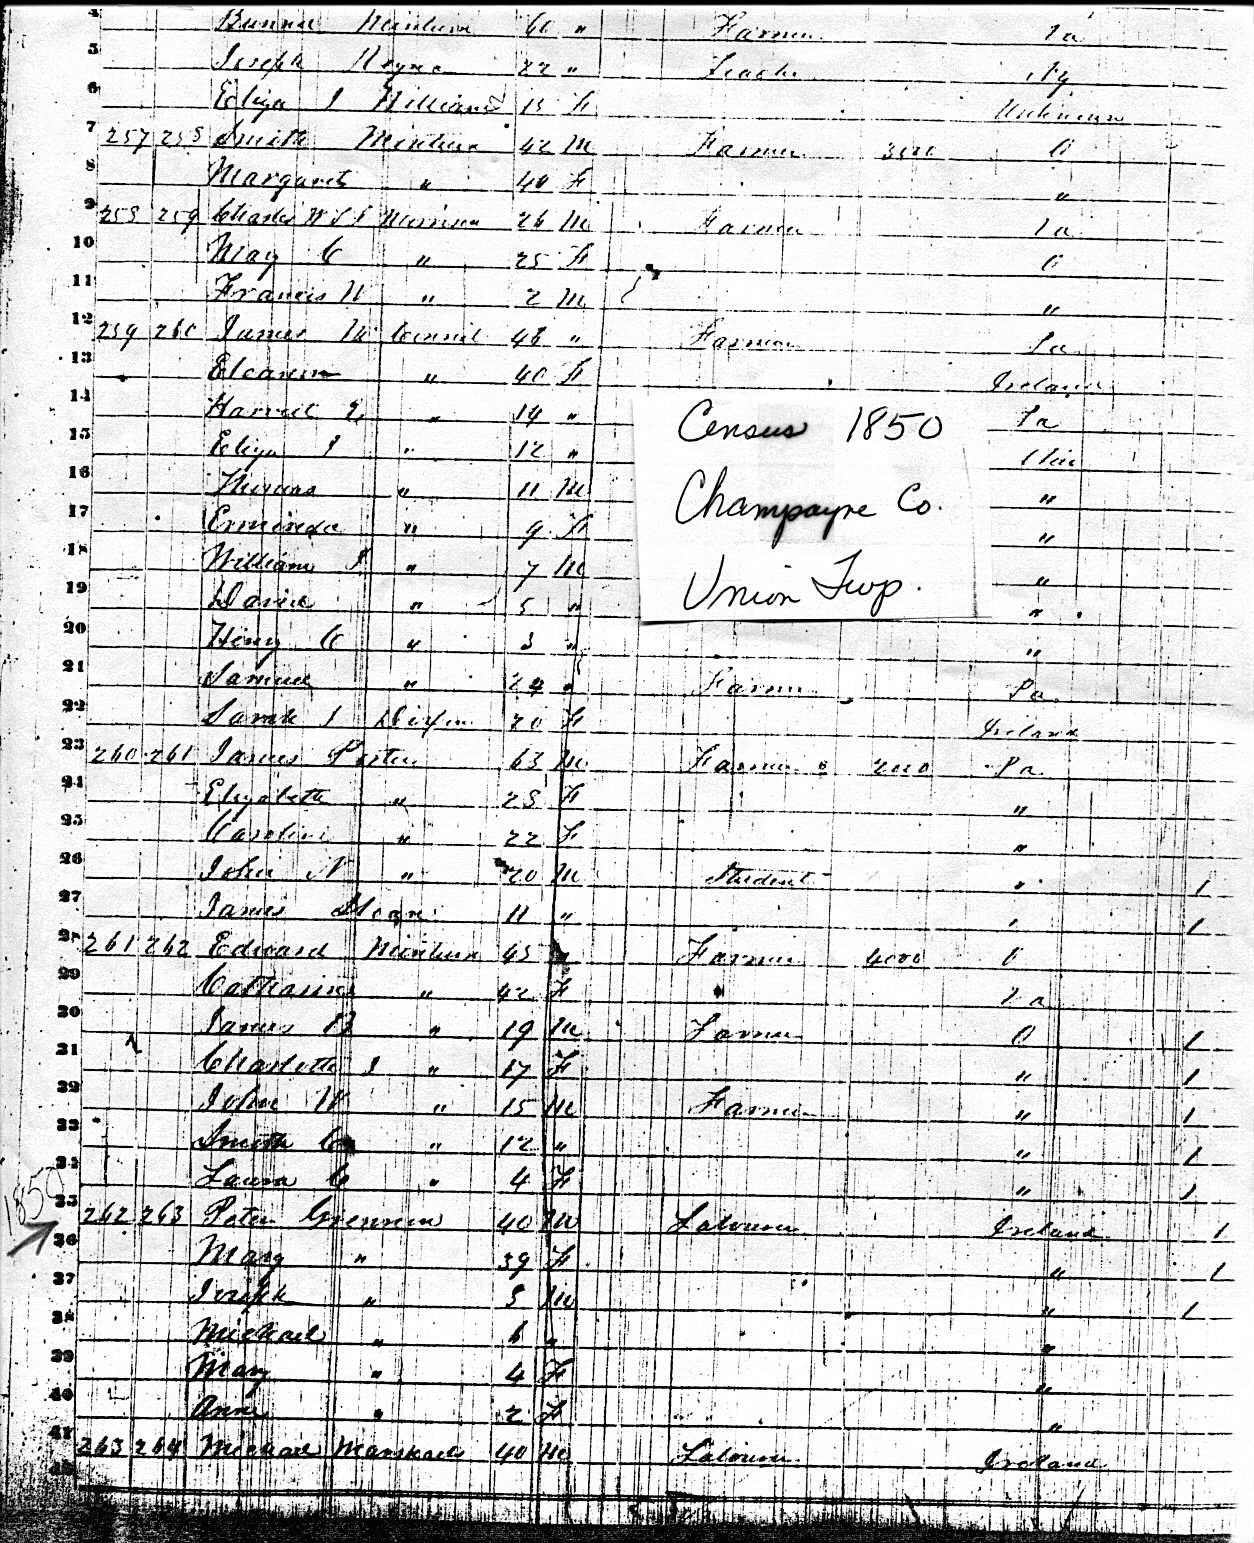 4 Minturn 60 " Farmer Va
5 Joseph 22 " Ny
6 Eliza J Williams 15 F Unknown
7 257 258 Smith Minturn 42 M Farmer 3500 O
8 Margaret " 40 F "
9 258 259 Charles W Morrison 26 M Farmer Va
10 May C " 25 F O
11 Francis W " 2 M "
12 259 260 James 46 " Farmer Pa
13 " 40 F Ireland
14 " 14 " Pa
15 Eliza J " 12 "
16 Thomas " 11 M "
17 " 9 F "
18 William J " 7 M "
19 David " 5 " "
20 Henry C " 3 " "
21 Samuel " 24 " Farmer Pa
22 Sarah J Dixon 20 F Ireland
23 260 261 James Porter 63 M Farmer 2000 Pa
24 Elizabeth " 28 F "
25 Caroline " 22 F "
26 John N " 20 M Student " 1
27 James Sloan 11 " " 1
28 261 262 Edward Minturn 45 " Farmer 4000 O
29 Catharine " 42 F Va
30 James B " 19 M Farmer O 1
31 Charlotte J " 17 F " 1
32 John W " 15 M Farmer " 1
33 Smith " 12 " " 1
34 Laura C " 4 F " 1
1850
35 262 263 Peter 40 M Labourer Ireland 1
36 Mary " 39 F " 1
37 Joseph " 8 M " 1
38 Michael " 6 " "
39 Mary " 4 F "
40 Anne " 2 F "
41 263 264 Michael 40 M Labourer Ireland
42
Census 1850
Champayne Co.
Union Twp.